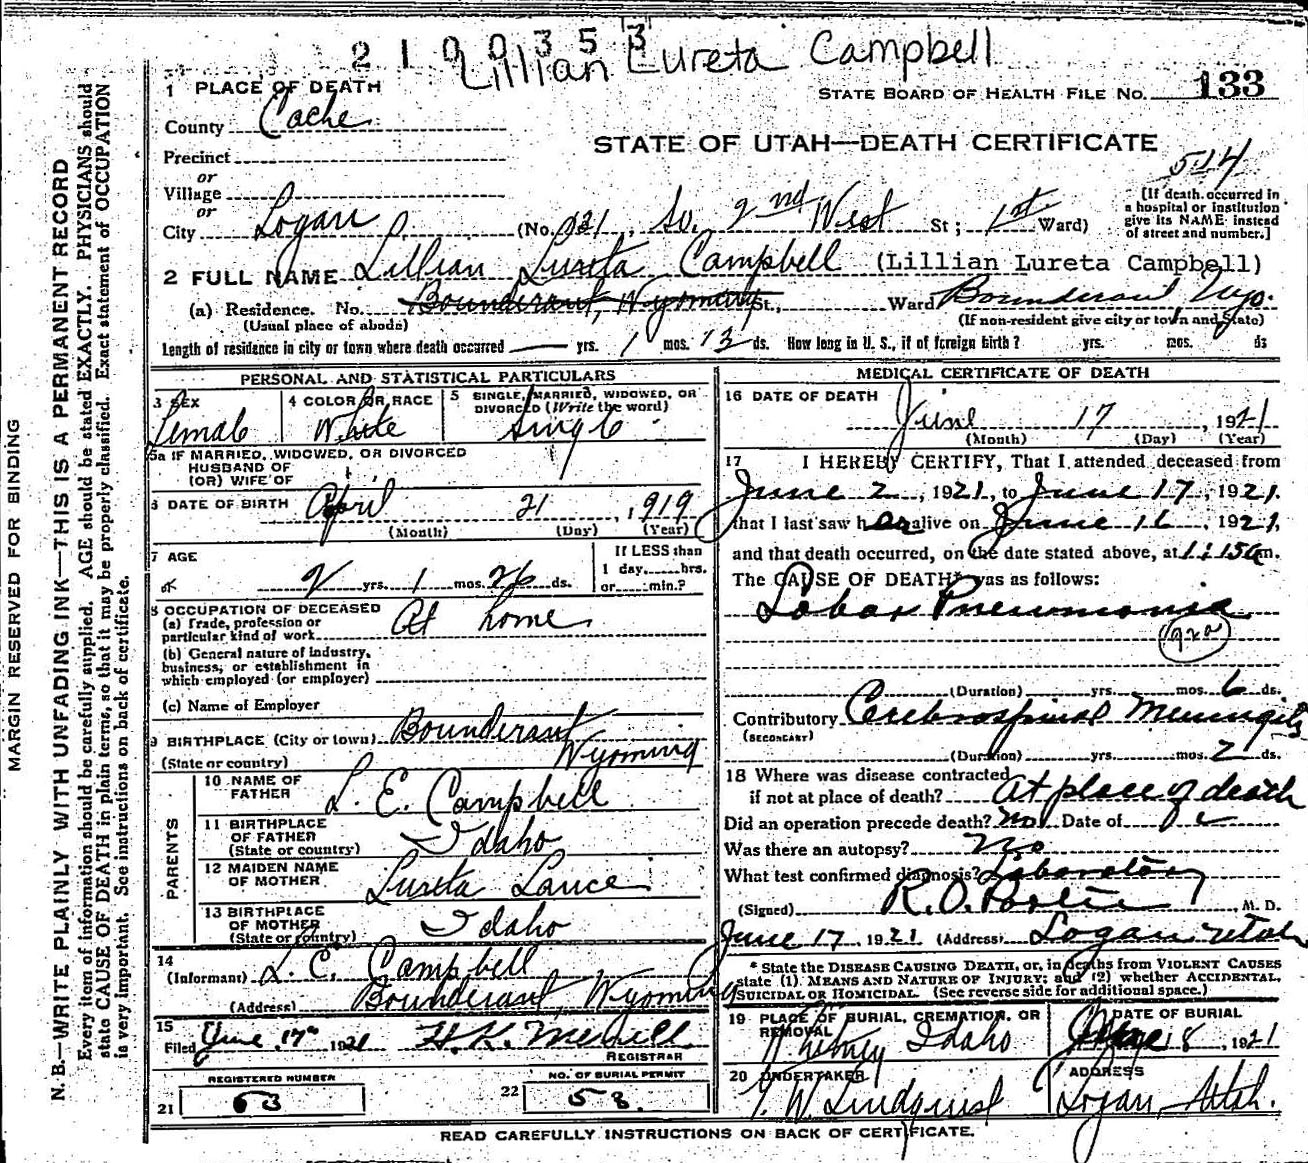 2100353
Lillian Lureta Campbell
STATE BOARD OF HEALTH FILE NO. 133
1 PLACE OF DEATH
County Cache
STATE OF UTAH—DEATH CERTIFICATE
Precinct
or
Village
or
City Logan (No. 321, So. 2nd West St; 1st Ward)
[If death occurred in
a hospital or institution
give its NAME instead
of street and number.]
2 FULL NAME Lillian Lureta Campbell (Lillian Lureta Campbell)
(a) Residence. No. Bounderant, Wyoming St., Ward Bounderant Wyo.
(Usual place of abode) (If non-resident give city or town and State)
Length of residence in city or town where death occurred — yrs. 1 mos. 13 ds. How long in U. S., if of foreign birth? yrs. mos. ds
PERSONAL AND STATISTICAL PARTICULARS
3 SEX Female
4 COLOR OR RACE White
5 SINGLE, MARRIED, WIDOWED, OR
DIVORCED (Write the word) Single
5a IF MARRIED, WIDOWED, OR DIVORCED
HUSBAND OF
(OR) WIFE OF
6 DATE OF BIRTH April 21, 1919
(Month) (Day) (Year)
7 AGE If LESS than
1 day, hrs.
2 yrs. 1 mos. 26 ds. or min.?
8 OCCUPATION OF DECEASED
(a) Trade, profession or
particular kind of work At home
(b) General nature of industry,
business, or establishment in
which employed (or employer)
(c) Name of Employer
9 BIRTHPLACE (City or town) Bounderant
(State or country) Wyoming
PARENTS
10 NAME OF
FATHER L. E. Campbell
11 BIRTHPLACE
OF FATHER
(State or country) Idaho
12 MAIDEN NAME
OF MOTHER Lureta Lance
13 BIRTHPLACE
OF MOTHER
(State or country) Idaho
14
(Informant) L. E. Campbell
(Address) Bounderant Wyoming
15
Filed June 17th 1921 H. K. Merrill
REGISTRAR
REGISTERED NUMBER
21 63
NO. OF BURIAL PERMIT
22 58.
MEDICAL CERTIFICATE OF DEATH
16 DATE OF DEATH
June 17, 1921
(Month) (Day) (Year)
17 I HEREBY CERTIFY, That I attended deceased from
June 2, 1921, to June 17, 1921.
that I last saw her alive on June 16, 1921,
and that death occurred, on the date stated above, at 1:15 am.
The CAUSE OF DEATH* was as follows:
Lobar Pneumonia
(Duration) yrs. mos. 6 ds.
Contributory Cerebrospinal Meningitis
(SECONDARY)
(Duration) yrs. mos. 2 ds.
18 Where was disease contracted
if not at place of death? At place of death
Did an operation precede death? no Date of
Was there an autopsy? No
What test confirmed diagnosis? Laboratory
(Signed) R. O. Porter, M. D.
June 17, 1921 (Address) Logan Utah
* State the DISEASE CAUSING DEATH, or, in deaths from VIOLENT CAUSES
state (1) MEANS AND NATURE OF INJURY; and (2) whether ACCIDENTAL,
SUICIDAL OR HOMICIDAL. (See reverse side for additional space.)
19 PLACE OF BURIAL, CREMATION, OR
REMOVAL
Whitney Idaho
DATE OF BURIAL
June 18, 1921
20 UNDERTAKER
W Lindquist
ADDRESS
Logan, Utah.
READ CAREFULLY INSTRUCTIONS ON BACK OF CERTIFICATE.
MARGIN RESERVED FOR BINDING
N. B.—WRITE PLAINLY WITH UNFADING INK—THIS IS A PERMANENT RECORD
Every item of information should be carefully supplied. AGE should be stated EXACTLY. PHYSICIANS should
state CAUSE OF DEATH in plain terms, so that it may be properly classified. Exact statement of OCCUPATION
is very important. See instructions on back of certificate.